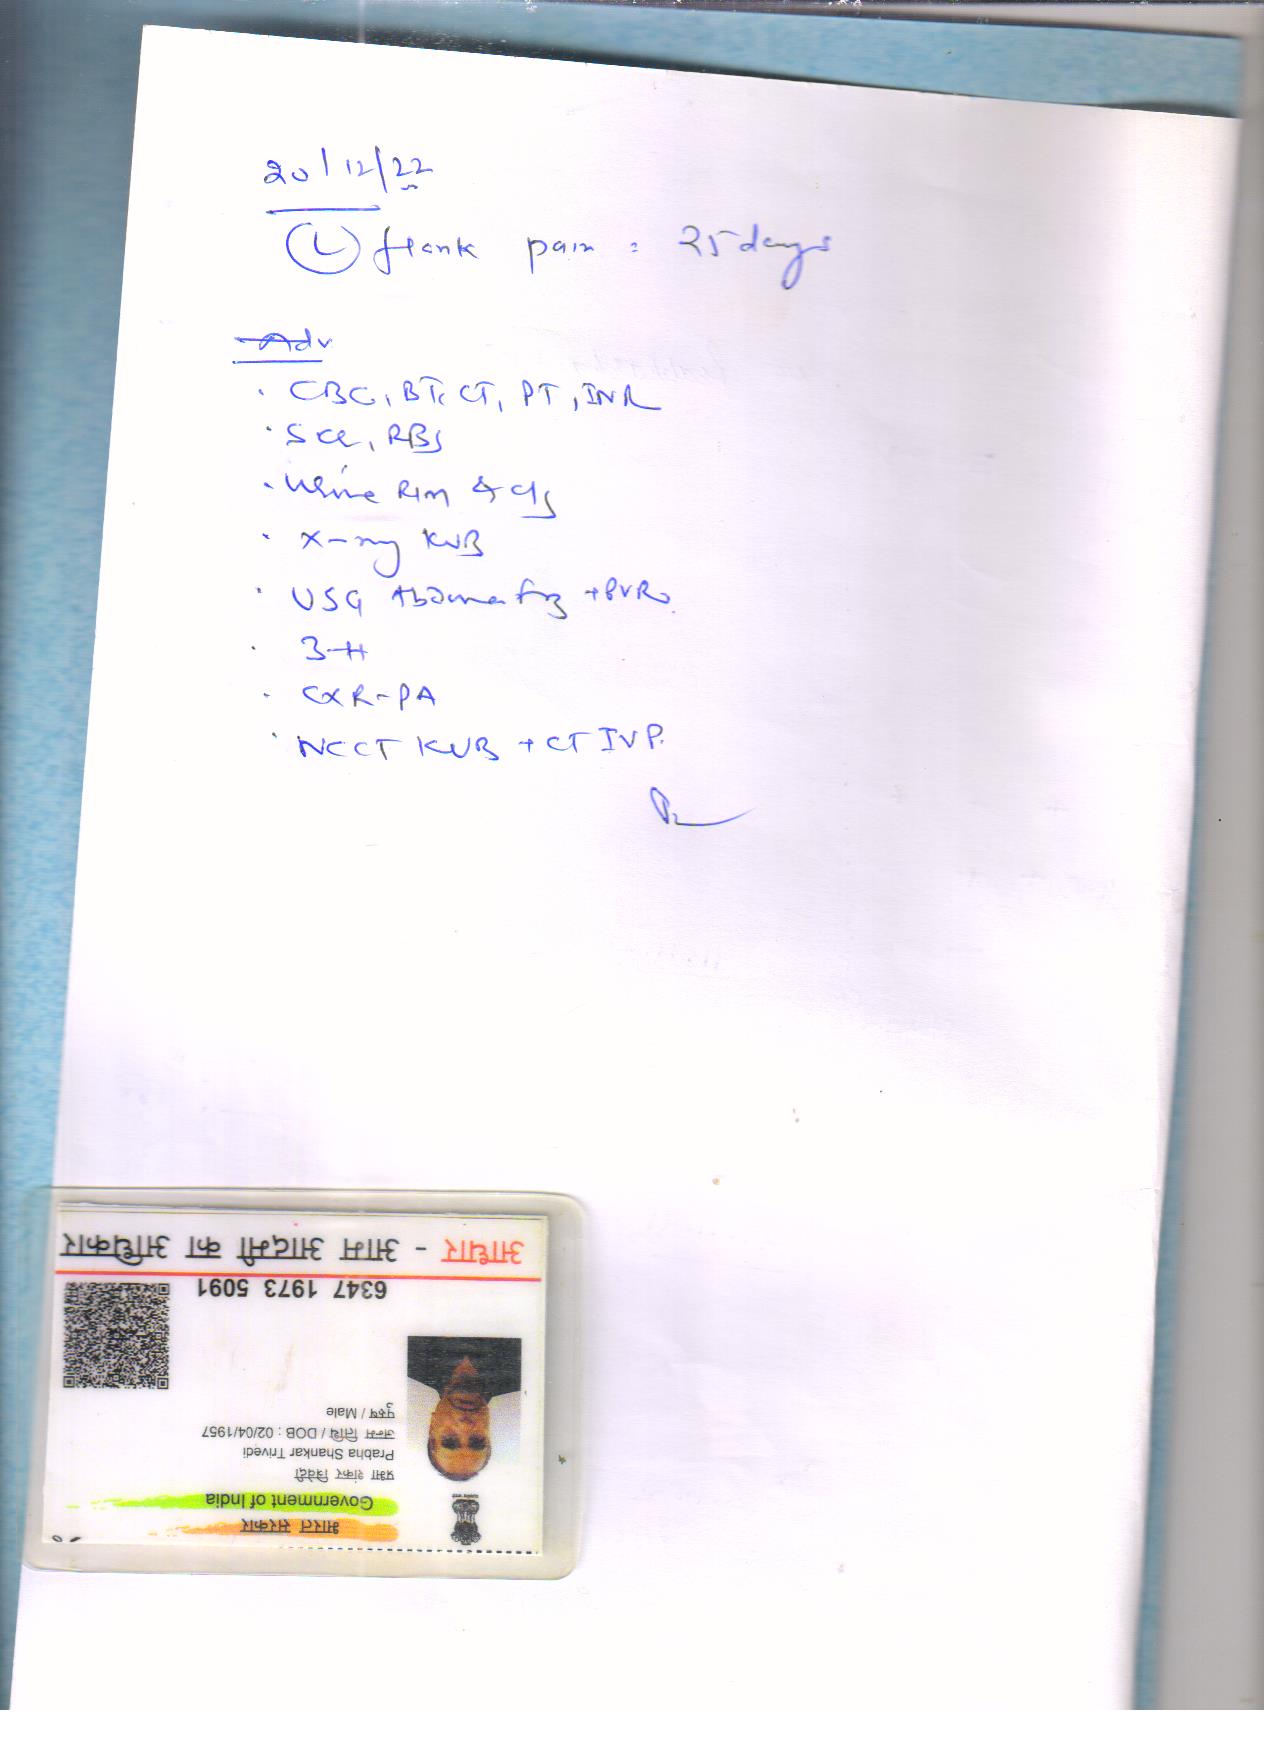 20/12/22
(L) flank pain : 25 days
Adv
. CBC, BT, CT, PT, INR
. S Cr, RBS
. Urine R/M & C/S
. X-ray KUB
. USG Abdomen +PVR
. 3-H
. CXR-PA
. NCCT KUB + CT IVP.
भारत सरकार
Government of India
प्रभा शंकर त्रिवेदी
Prabha Shankar Trivedi
जन्म तिथि / DOB : 02/04/1957
पुरुष / Male
6347 1973 5091
आधार - आम आदमी का अधिकार